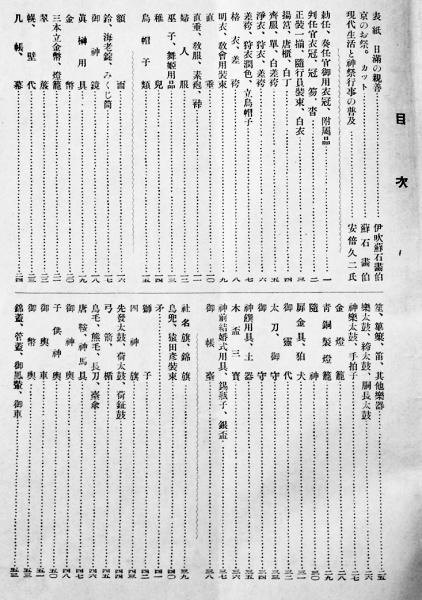 目次
表紙 日滿の親善 伊吹蘇石畫伯
京のお祭。カット 蘇石畫伯
現代生活と神祭行事の普及 安倍久二氏
勅任、奏任官御用衣冠、附屬品 一
判任官衣冠、冠、笏、沓 二
正裝一揃、隨行員裝束、白衣
揚筥、唐櫃、白丁
齊服、單、白差袴
淨衣、狩衣、差袴
差袴、狩衣潤色、立烏帽子
格衣、差袴 八
明衣、敎會用裝束 九
直垂
直垂、敎服、素袍、裃
婦人服
巫子、舞姬用品
稚兒
烏帽子類
額面 一六
鈴、海老錠、みくじ筒 一七
御神鏡 一八
眞榊用具 一九
金幣 二〇
三本立金幣、燈籠 二一
翠簾
幌、壁代 二三
几帳、幕 二四
笙、篳篥、笛、其他樂器 二五
樂太鼓、袴太鼓、胴長太鼓 二六
神樂太鼓、手拍子 二七
金燈籠
靑銅製燈籠 二九
隨神 三〇
扉金具、狛犬 三一
御靈代 三二
太刀、御守 三三
御守 三四
神饌用具、土器 三五
木盃、三寶 三六
神前結婚式用具、錫瓶子、銀盃 三七
御帳臺 三八
社名旗、錦旗 三九
鳥兜、猿田彥裝束 四〇
矛 四一
獅子 四二
四神旗
弓、箭、楯
先發太鼓、荷太鼓、荷鉦鼓
白毛、熊毛、長刀、臺傘
唐鞍、神馬具
御神輿 四八
子供神輿
御輿車
御幣輿
錦蓋、菅蓋、御馬輦、御車